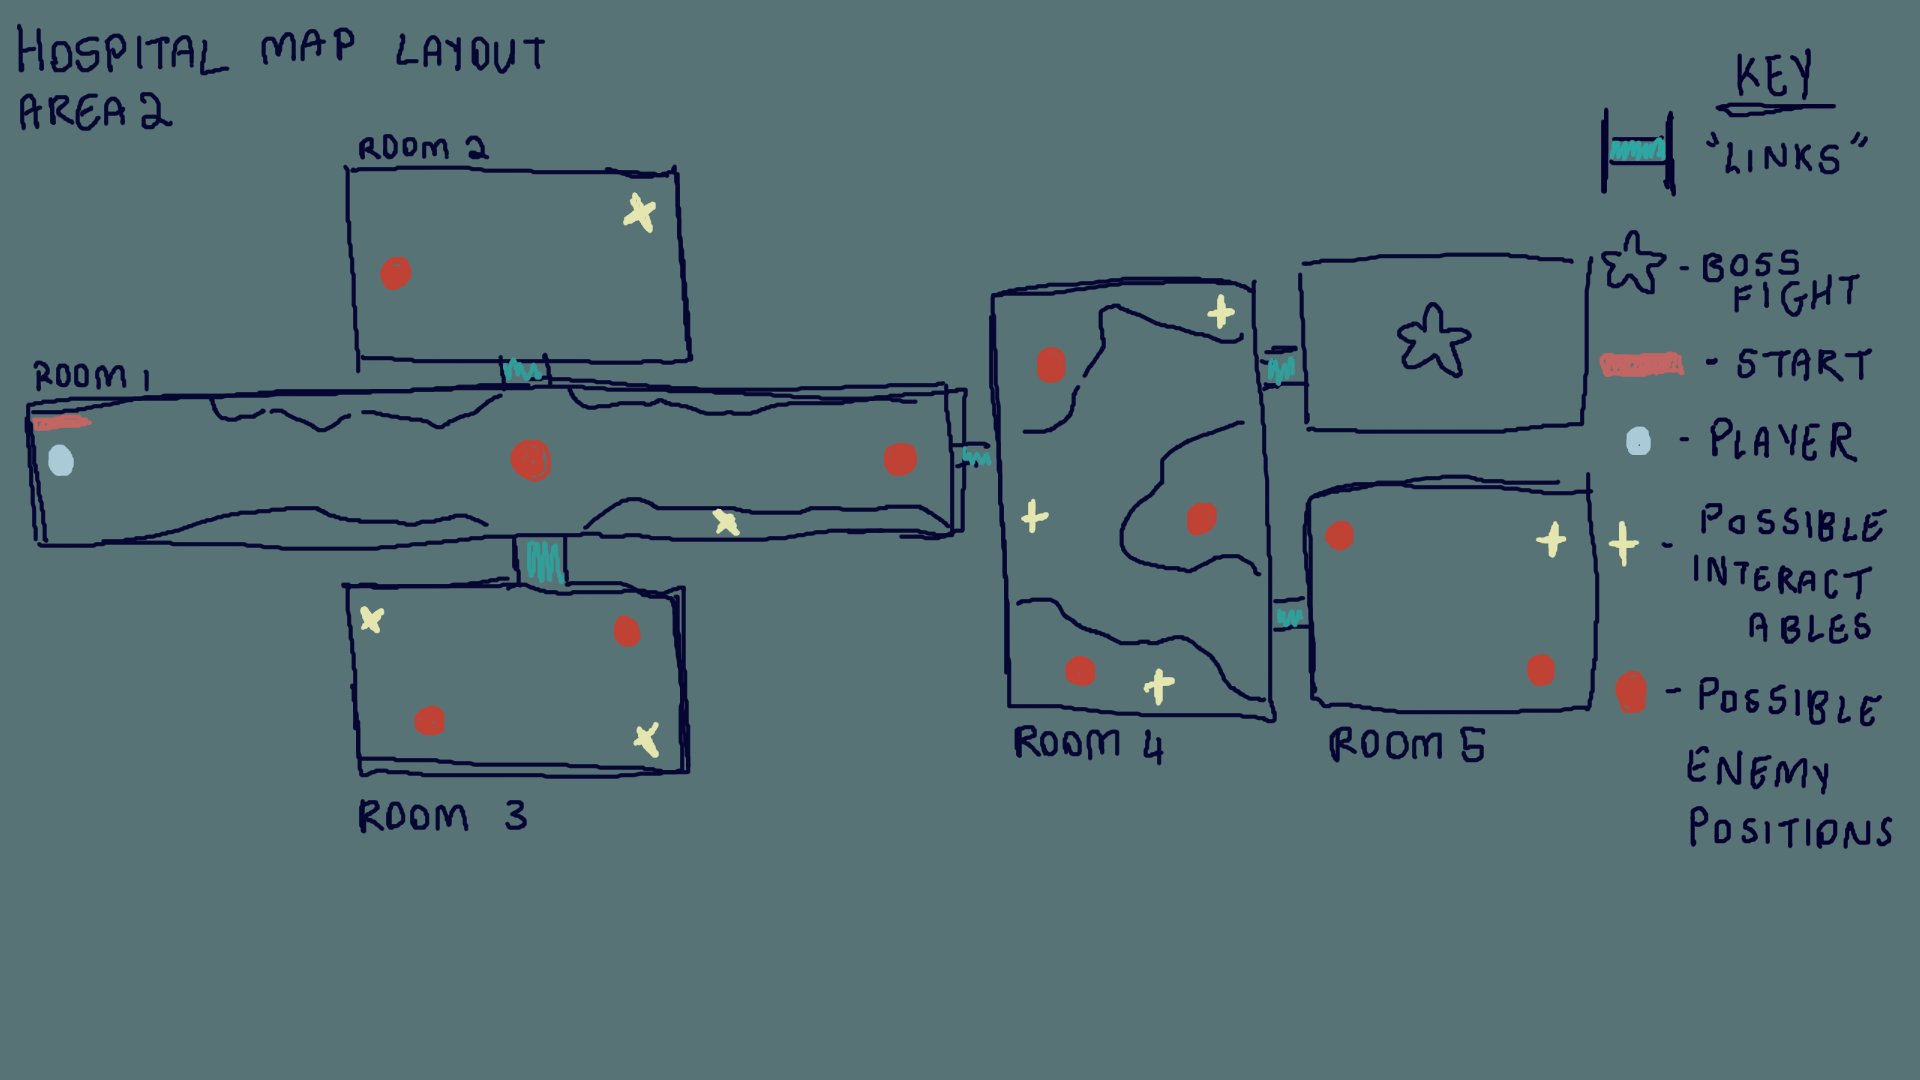 HOSPITAL MAP LAYOUT
AREA 2
ROOM 2
ROOM 1
ROOM 3
ROOM 4
ROOM 5
KEY
"LINKS"
- BOSS
FIGHT
- START
- PLAYER
- POSSIBLE
INTERACT
ABLES
- POSSIBLE
ENEMY
POSITIONS